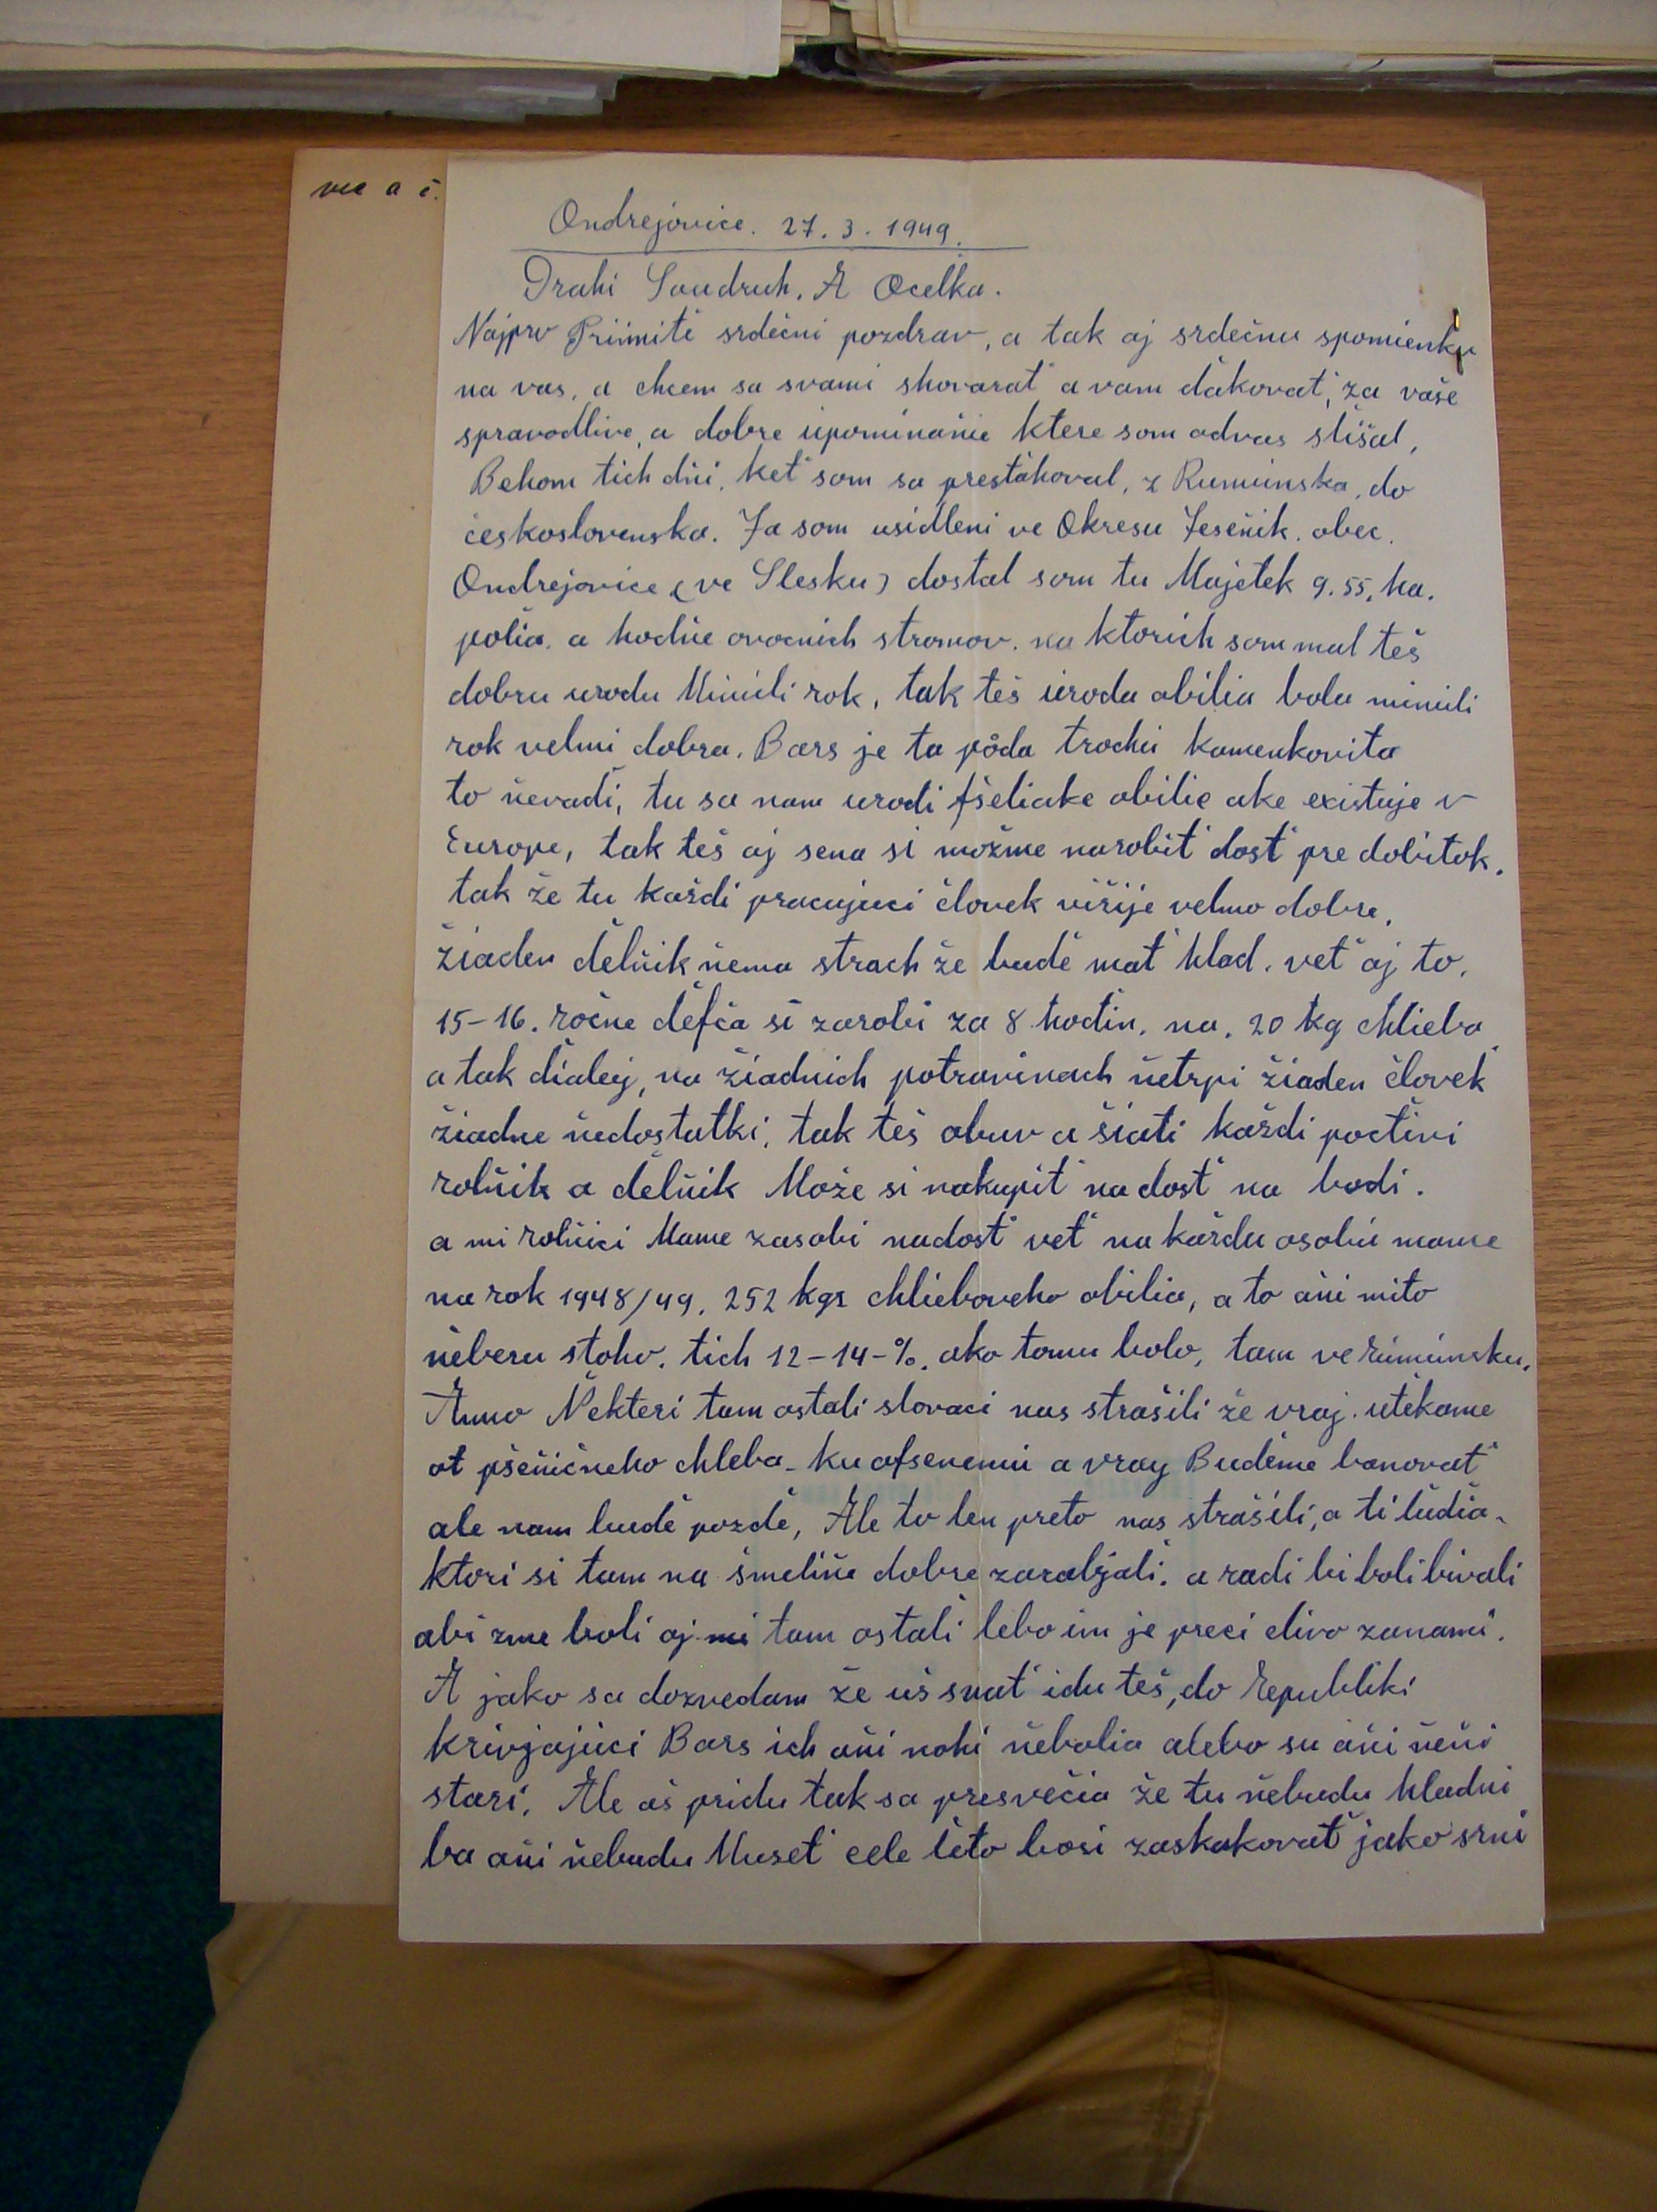 me a i.
Ondrejovice. 27. 3. 1949.
Drahi Soudruh. A Ocelka.
Najprv Priimite srdečni pozdrav, a tak aj srdečnu spomienku
na vas, a chcem sa svami shovarať a vam ďakovať, za vaše
spravodlive, a dobre upominaňie ktere som odvas slišal,
Behom tich dňi, keť som sa presťahoval, z Rumunska, do
československa. Ja som usidleni ve Okresu Jeseňik. obec.
Ondrejovice (ve Slesku) dostal som tu Majetek 9.55. ha.
polia. a hodňe ovocnich stromov. na ktorich som mal teš
dobru urodu Minuli rok, tak teš uroda obilia bola minuli
rok velmi dobra. Bars je ta pôda trochu kamenkovita
to ňevadi, tu sa nam urodi fšeliake obilie ake existuje v
Europe, tak teš aj sena si možme narobiť dosť pre dobitok.
tak že tu každi pracujuci človek vižije velmo dobre,
žiaden ďelňik ňema strach že buďe mať hlad. veť aj to,
15-16. ročne ďefča si zarobi za 8 hoďin. na. 20 kg chlieba
a tak ďialej, na žiadnich potravinach ňetrpi žiaden človek
žiadne ňedostatki, tak teš obuv a šiati každi poctivi
rolňik a ďelňik Može si nakupiť na dosť na bodi.
a mi rolňici Mame zasobi nadosť veť na každu osobu mame
na rok 1948/49. 252 kgr chlieboveho obilia, a to aňi mito
ňeberu stoho. tich 12-14-%. ako tomu bolo, tam ve rumunsku.
Anno Ňekteri tam ostali slovaci nas strašili že vraj. uťekame
ot pšeňičneho chleba - ku ofsenemu a vraj Buďeme banovať
ale nam buďe pozďe, Ale to len preto nas strašili, a ti ľuďia
ktori si tam na šmeliňe dobre zarabjali. a radi bi boli bivali
abi zme boli aj mi tam ostali lebo im je preci clivo zanami.
A jako sa dozvedam že uš snať idu teš, do republiki
krivjajuci Bars ich aňi nohi ňebolia alebo su aňi ňeňi
stari. Ale aš pridu tak sa presvečia že tu ňebudu hladni
ba aňi ňebudu Museť cele ľeto bosi zaskakovať jako srni